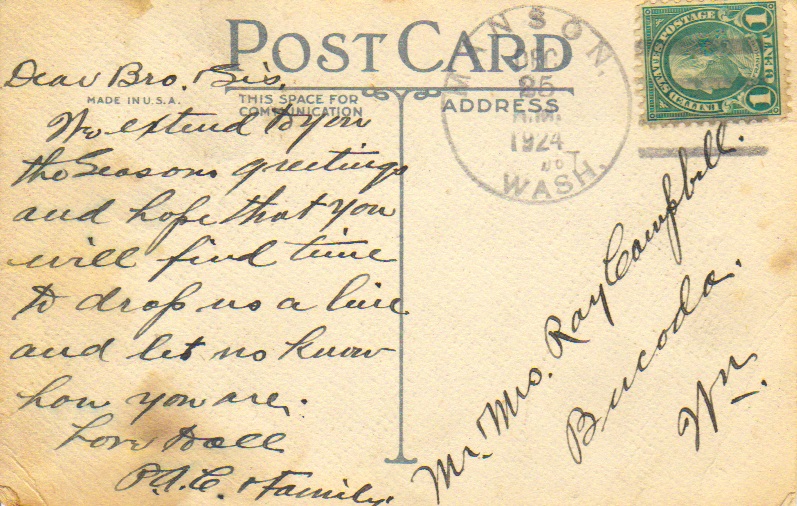 POST CARD
MADE IN U.S.A.
THIS SPACE FOR
COMMUNICATION
ADDRESS
MANSON,
DEC
25
A.M.
1924
WASH.
U.S. POSTAGE
1 CENT 1
Dear Bro. Sis.
We extend to you
the Seasons greetings
and hope that you
will find time
to drop us a line
and let us know
how you are.
Love to all
P.A.C. & Family.
Mr. Mrs. Ray Campbell.
Bucoda.
Wn.